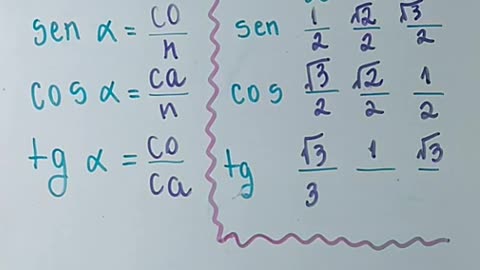 sen α = co/n
cos α = ca/n
tg α = co/ca
sen 1/2 √2/2 √3/2
cos √3/2 √2/2 1/2
tg √3/3 1 √3